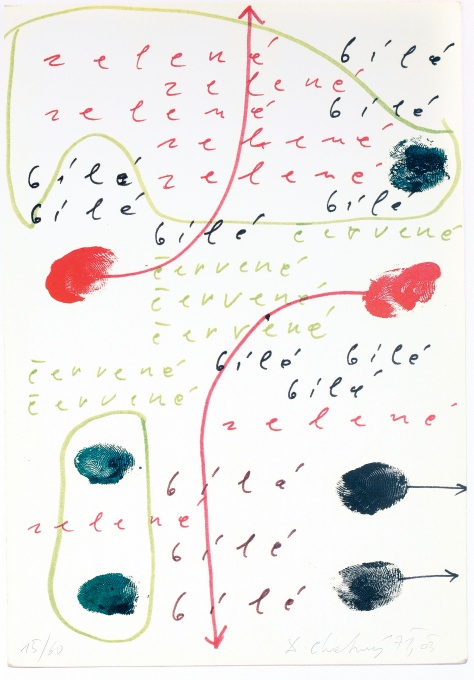 zelené bílé
zelené
zelené bílé
zelené
bílé zelené
bílé bílé
bílé červené
červené
červené
červené
bílé bílé
červené bílá
červené
zelené
bílá
zelené
bílé
bílé
15/60